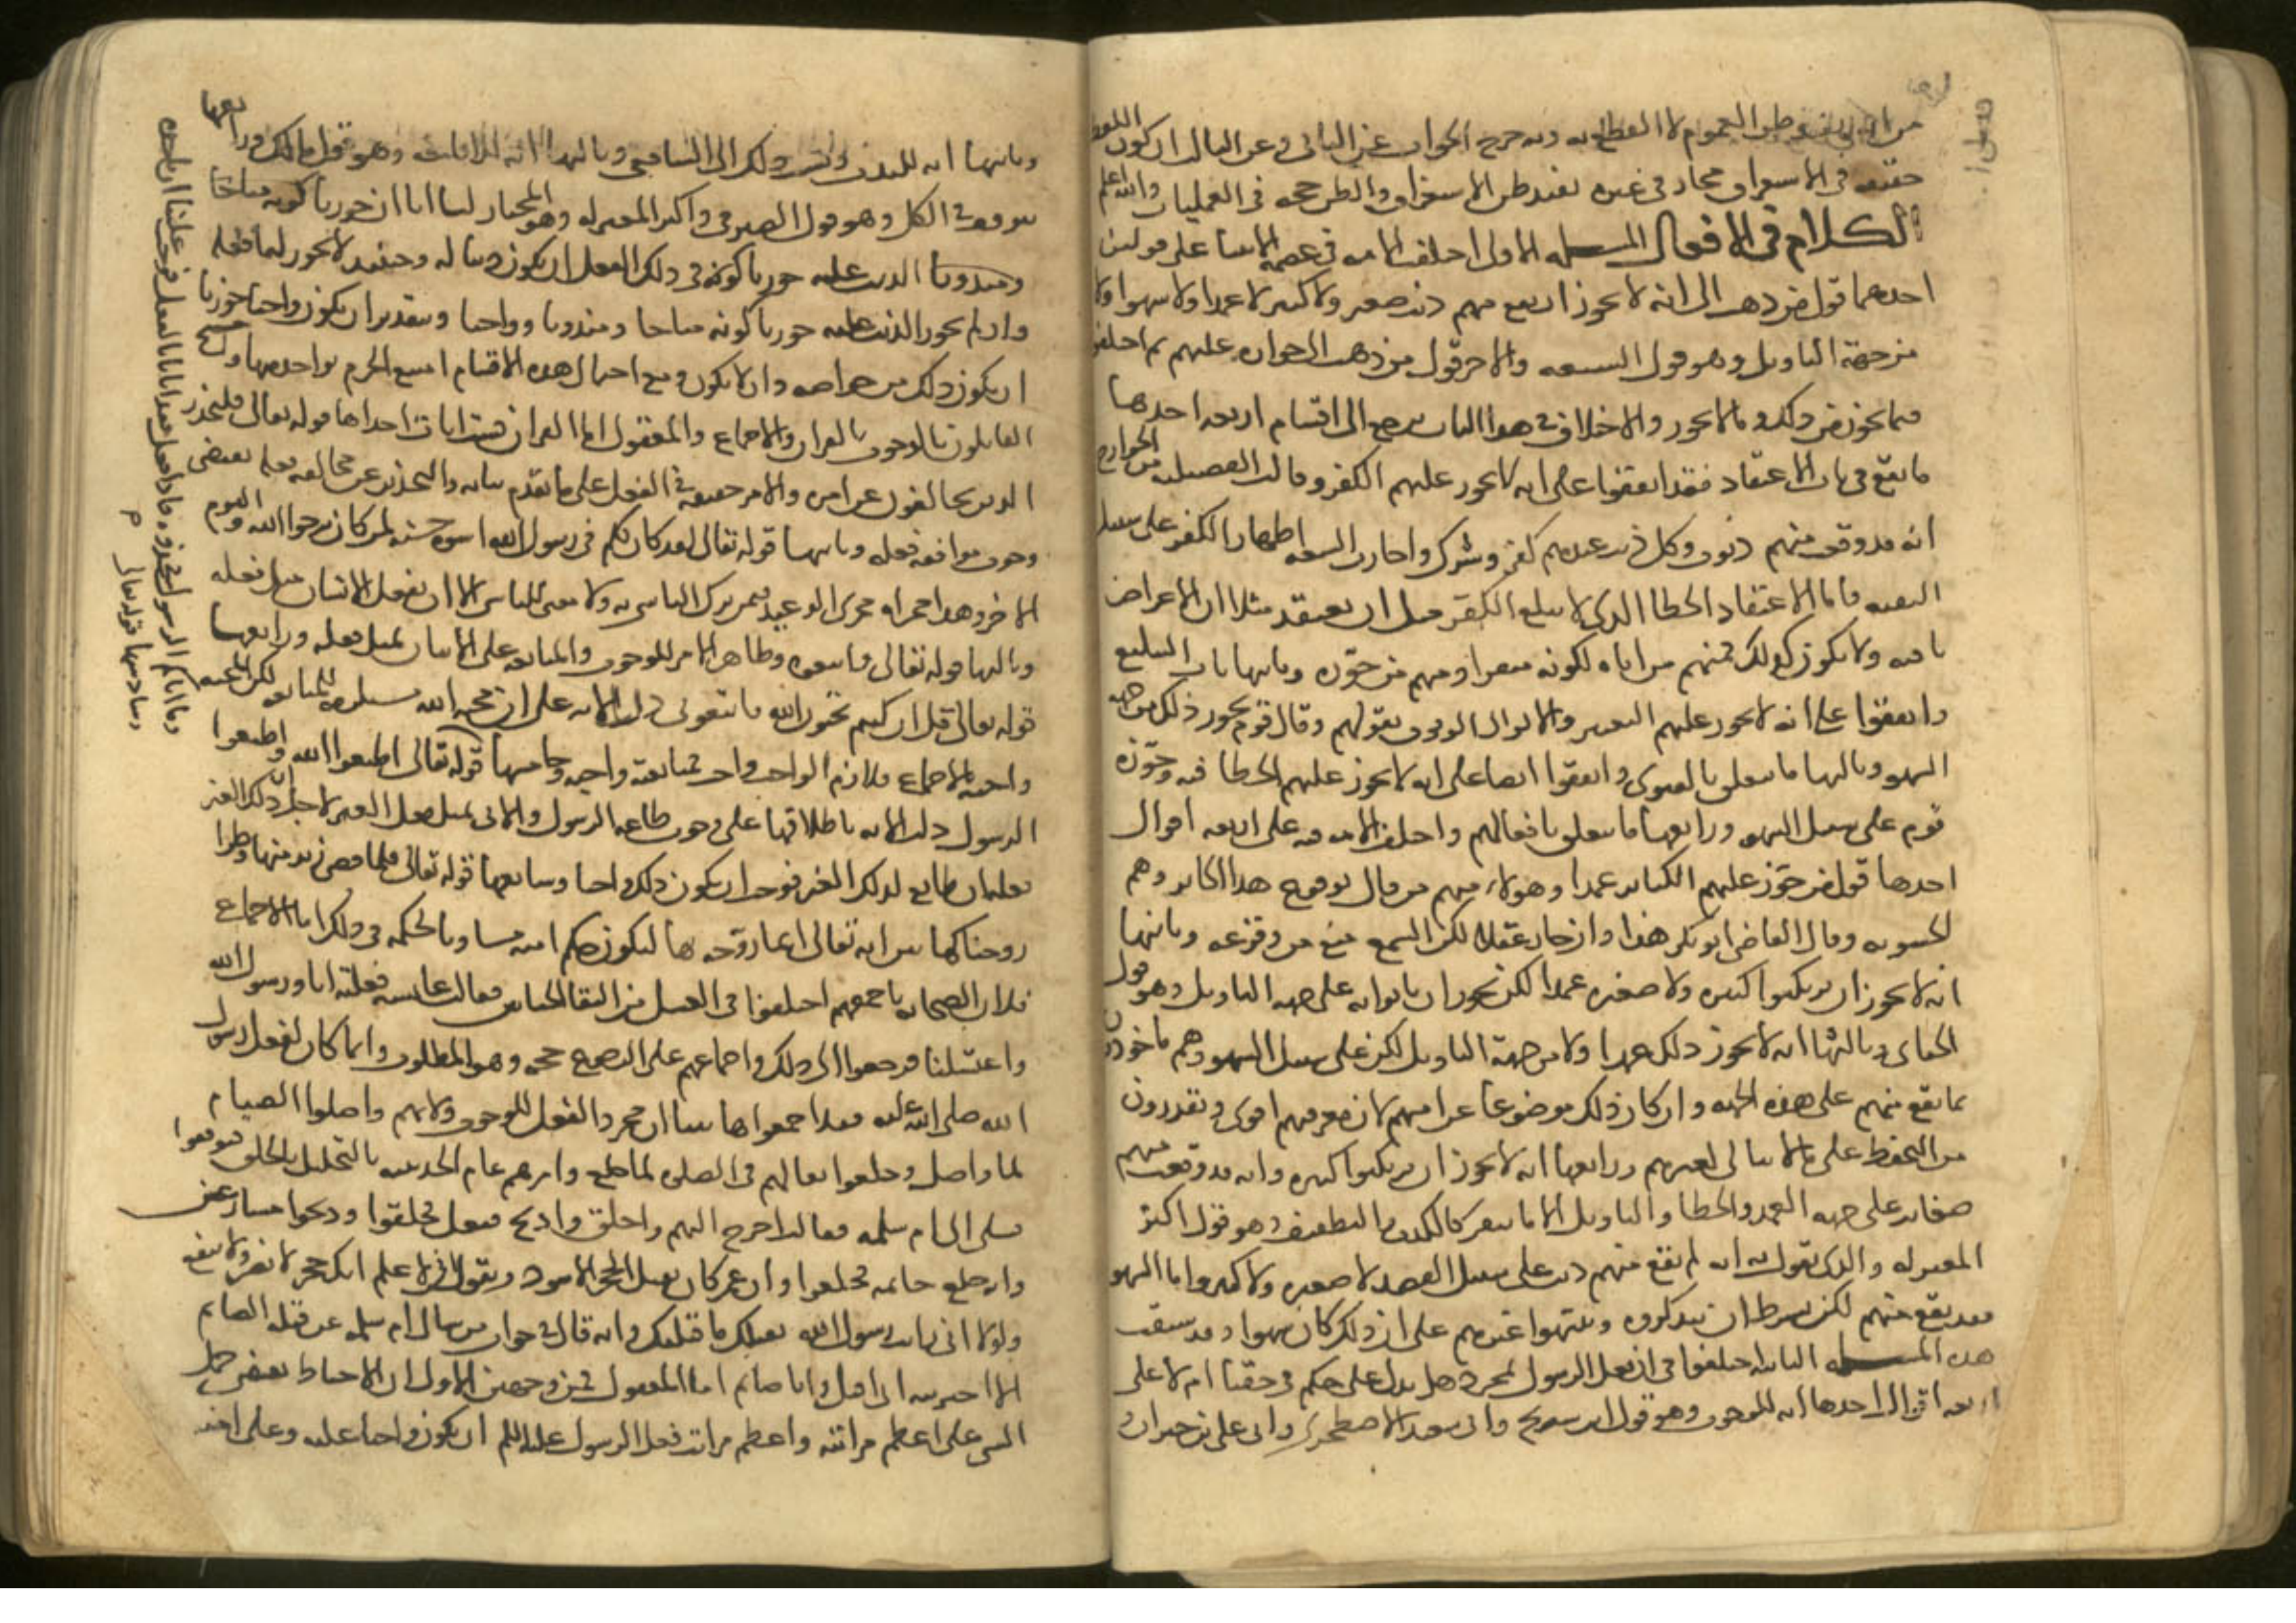 من انه يفيد ظن العموم لا القطع به وبه خرج الجواب عن الثاني وعن الثالث ان كون اللفظ
حقيقة في الاستغراق مجاز في غيره يفيد ظن الاستغراق والظن حجة في العمليات والله اعلم
الكلام في الافعال المسئلة الاولى اختلف الامة في عصمة الانبيا على قولين
احدهما قول من ذهب الى انه لا يجوز ان يقع منهم ذنب صغير ولا كبير لا عمدا ولا سهوا ولا
من جهة التاويل وهو قول الشيعة والاخر قول من ذهب الى جوازه عليهم ثم اختلفوا
فيما يجوز من ذلك وما لا يجوز والاختلاف في هذا الباب يرجع الى اقسام اربعة احدها
ما يقع في باب الاعتقاد فقد اتفقوا على انه لا يجوز عليهم الكفر وقالت الفضيلية من الخوارج
انه قد وقعت منهم ذنوب وكل ذنب عندهم كفر وشرك واجازت الشيعة اظهار الكفر على سبيل
التقية فاما الاعتقاد الخطا الذي لا يبلغ الكفر مثل ان يعتقد مثلا ان الاعراض
باقية ولا يكون كذلك فمنهم من اباه لكونه منفرا ومنهم من جوزه وثانيها باب التبليغ
واتفقوا على انه لا يجوز عليهم التغيير والا لزال الوثوق بقولهم وقال قوم يجوز ذلك من جهة
السهو وثالثها ما يتعلق بالفتوى واتفقوا ايضا على انه لا يجوز عليهم الخطا فيه وجوزه
قوم على سبيل السهو ورابعها ما يتعلق بافعالهم واختلف الامة فيه على اربعة اقوال
احدها قول من جوز عليهم الكبائر عمدا وهولاء منهم من قال بوقوع هذا الجائز وهم
الحشوية وقال القاضي ابو بكر هذا وان جاز عقلا لكن السمع منع من وقوعه وثانيها
انه لا يجوز ان يرتكبوا كبيرة ولا صغيرة عمدا لكن يجوز ان ياتوا به على جهة التاويل وهو قول
الجبائي وثالثها انه لا يجوز ذلك عمدا ولا من جهة التاويل لكن على سبيل السهو وهم ماخوذون
بما يقع منهم على هذه الجهة وان كان ذلك موضوعا عن امتهم لان معرفتهم اقوى ويقدرون
من التحفظ على ما لا يتاتى لغيرهم ورابعها انه لا يجوز ان يرتكبوا كبيرة وانه قد وقعت منهم
صغائر على جهة العمد والخطا والتاويل الا ما ينفر كالكذب والتطفيف وهو قول اكثر
المعتزلة والذي نقول به انه لم يقع منهم ذنب على سبيل القصد لا صغيرة ولا كبيرة واما السهو
فقد يقع منهم لكن بشرط ان يتذكروه وينبهوا غيرهم على ان ذلك كان سهوا وقد سبقت
هذه المسئلة الثانية اختلفوا في ان فعل الرسول بمجرده هل يدل على حكم في حقنا ام لا على
اربعة اقوال احدها انه للوجوب وهو قول ابن سريج وابي سعيد الاصطخري وابي علي بن خيران
وثانيها انه للندب ونسب ذلك الى الشافعي وثالثها انه للاباحة وهو قول مالك ورابعها
يتوقف في الكل وهو قول الصيرفي واكثر المعتزلة وهو المختار لنا انا ان جوزنا كونه مباحا
ومندوبا الذنب عليه جوزنا كونه في ذلك الفعل ان يكون ذنبا له وحينئذ لا يجوز لنا فعله
وان لم يجوز الذنب عليه جوزنا كونه مباحا ومندوبا وواجبا وبتقدير ان يكون واجبا جوزنا
ان يكون ذلك من خواصه وان لا يكون ومع احتمال هذه الاقسام امتنع الجزم بواحد منها
القائلون بالوجوب بالقران والاجماع والمعقول اما القران فست ايات احداها قوله تعالى فليحذر
الذين يخالفون عن امره والامر حقيقة في الفعل على ما تقدم بيانه والتحذير عن مخالفة فعله يقتضي
وجوب موافقة فعله وثانيها قوله تعالى لقد كان لكم في رسول الله اسوة حسنة لمن كان يرجوا الله واليوم
الاخر وهذا مجراه مجرى الوعيد فيمن ترك التاسي به ولا معنى للتاسي الا ان يفعل الانسان مثل فعله
وثالثها قوله تعالى فاتبعوه وظاهر الامر للوجوب والمتابعة هي الاتيان بمثل فعله ورابعها
قوله تعالى قل ان كنتم تحبون الله فاتبعوني دلت الاية على ان محبة الله مستلزمة للمتابعة لكن المحبة
واجبة بالاجماع فلازم الواجب واجب فمتابعته واجبة وخامسها قوله تعالى اطيعوا الله واطيعوا
الرسول دلت الاية باطلاقها على وجوب طاعة الرسول والاتي بمثل فعل الغير لاجل ذلك الغير
طائع لذلك الغير فوجب ان يكون ذلك واجبا وسابعها قوله تعالى فلما قضى زيد منها وطرا
زوجناكها بين انه تعالى انما زوجه بها ليكون حكم امته مساويا لحكمه في ذلك اما الاجماع
فلان الصحابة باجمعهم اختلفوا في الغسل من التقا الختانين فقالت عائشة فعلته انا ورسول الله
واغتسلنا فرجعوا الى ذلك واجماعهم على الرجوع حجة وهو المطلوب وانما كان لفعل رسول
الله صلى الله عليه فقد اجمعوا هاهنا ان مجرد الفعل للوجوب ولانهم واصلوا الصيام
لما واصل وخلعوا نعالهم في الصلوة لما خلع وامرهم عام الحديبية بالتحلل بالحلق فتوقفوا
فشكى الى ام سلمة فقالت اخرج اليهم واحلق واذبح ففعل فحلقوا وذبحوا متسارعين
وانه خلع خاتمه فخلعوا وان عمر كان يقبل الحجر الاسود ويقول اني لاعلم انك حجر لا تضر ولا تنفع
ولولا اني رايت رسول الله يقبلك ما قبلتك وانه قال في جواب من سال ام سلمة عن قبلة الصائم
الا اخبرتيه اني اقبل وانا صائم اما المعقول فمن وجهين الاول ان الاحتياط يقتضي حمل
الشي على اعظم مراتبه واعظم مراتب فعل الرسول عليه السلم ان يكون واجبا عليه وعلى امته
وما اتاكم الرسول فخذوه فاذا فعل فقد اتانا بالفعل فوجب علينا ان ناخذه
وسادسها قوله تعالى